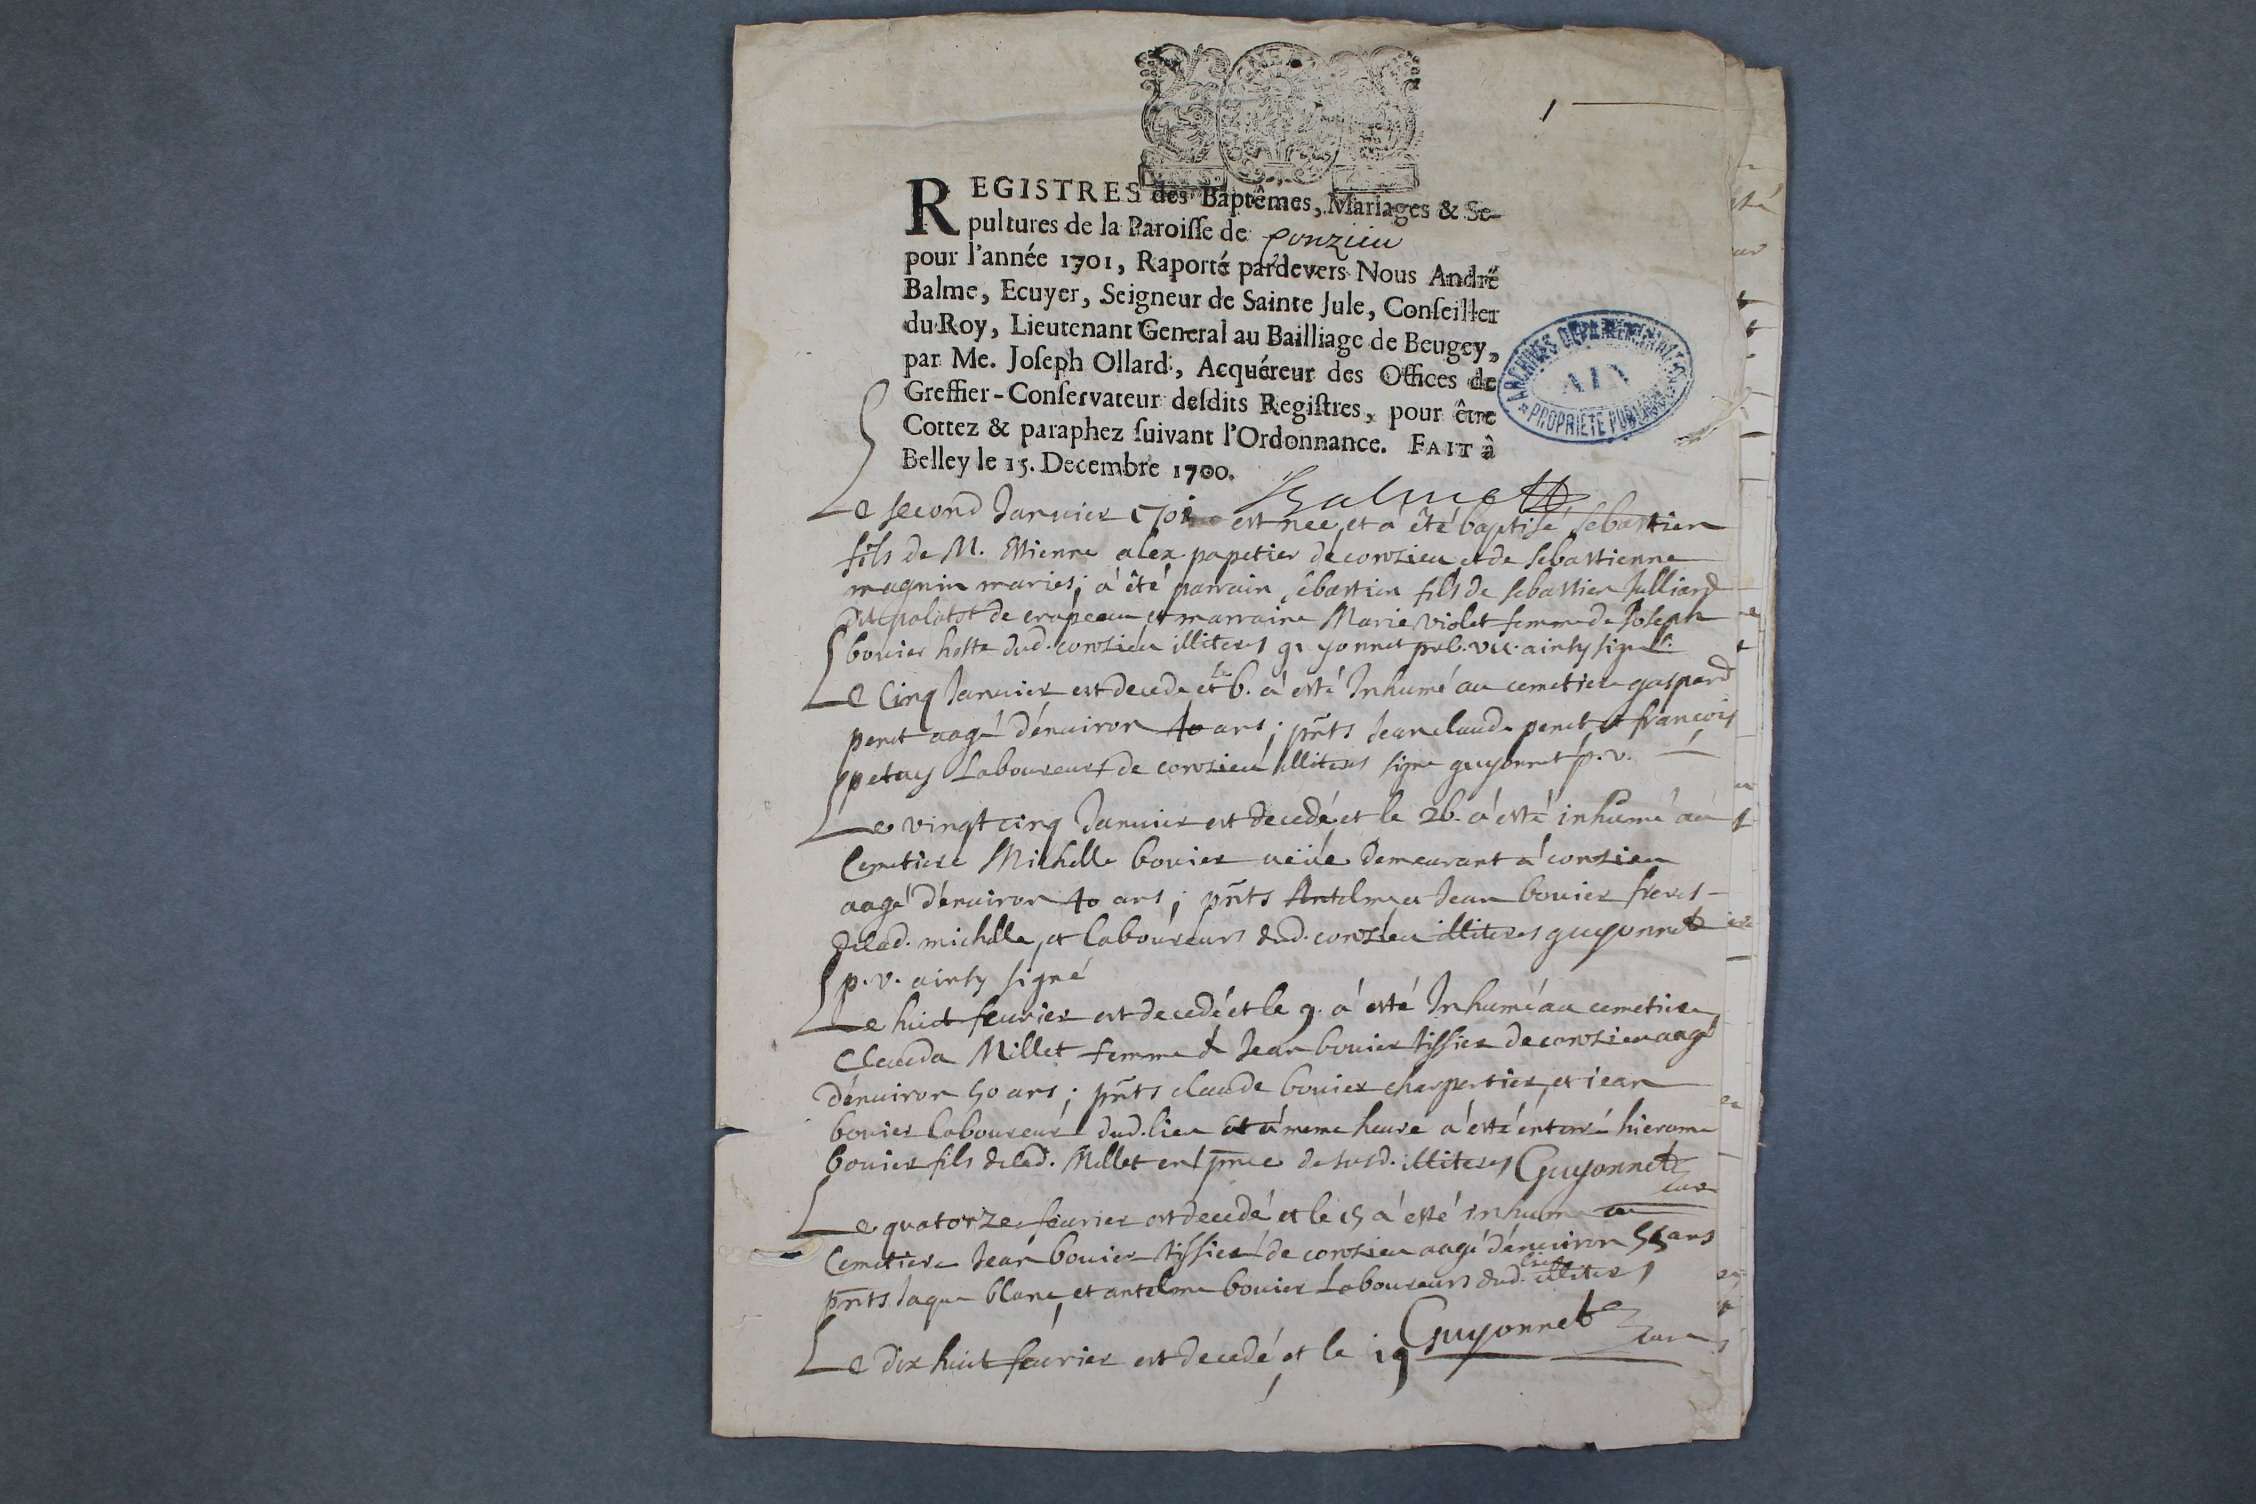 1
REGISTRES des Baptêmes, Mariages & Se-
pultures de la Paroisse de Conzieu
pour l'année 1701, Raporté pardevers Nous André
Balme, Ecuyer, Seigneur de Sainte Jule, Conseiller
du Roy, Lieutenant General au Bailliage de Beugey,
par Me. Joseph Ollard, Acquéreur des Offices de
Greffier-Conservateur desdits Registres, pour être
Cottez & paraphez suivant l'Ordonnance. FAIT â
Belley le 15. Decembre 1700.
Balme
ARCHIVES DEPARTEMENTALES
AIN
PROPRIÉTÉ PUBLIQUE
Le second Januier 1701 est née, et à été baptisé sebastien
fils de M. Etienne alex papetier de conzieu et de sebastienne
magnin maries; à été parrain sebastien fils de sebastien Julliard
dit palatot de crapeau et marraine Marie violet femme de Joseph
bouier hoste dud. conzieu illiteres guyonnet vic. ainsy signé.
Le Cinq Januier est decede et le 6. à esté Inhumé au cemetiere gaspard
peret aagé d'enuiron 40 ans; pñts Jean claude peret et françois
petay Laboureurs de conzieu illiteres signe guyonnet p. v.
Le vingt cinq Januier est decedé, et le 26. à esté inhumé au
Cemetiere Michelle bouier ueüe demeurant à conzieu
aagé d'enuiron 40 ans; pñts Antelme et Jean bouier freres
delad. michelle, et laboureurs dud. conzieu illiteres guyonnet
p. v. ainsy signé
Le huict feurier est decedé et le 9. à esté Inhumé au cemetiere
Clauda Millet femme de Jean bouier tissier de conzieu aagé
d'enuiron 50 ans; pñts claude bouier charpentier, et jean
bouier laboureur dud. lieu et à meme heure à esté enterré hierome
bouier fils delad. Millet en pñce de susd. illiteres Guyonnet
cure
Le quatorze feurier est decedé et le 15 à esté inhumé au
Cemetiere Jean bouier tissier de conzieu aagé d'enuiron 55 ans
pñts Jaque blanc, et antelme bouier Laboureurs dud. lieu illiteres
Guyonnet cure
Le dix huict feurier est decedé, et le 19